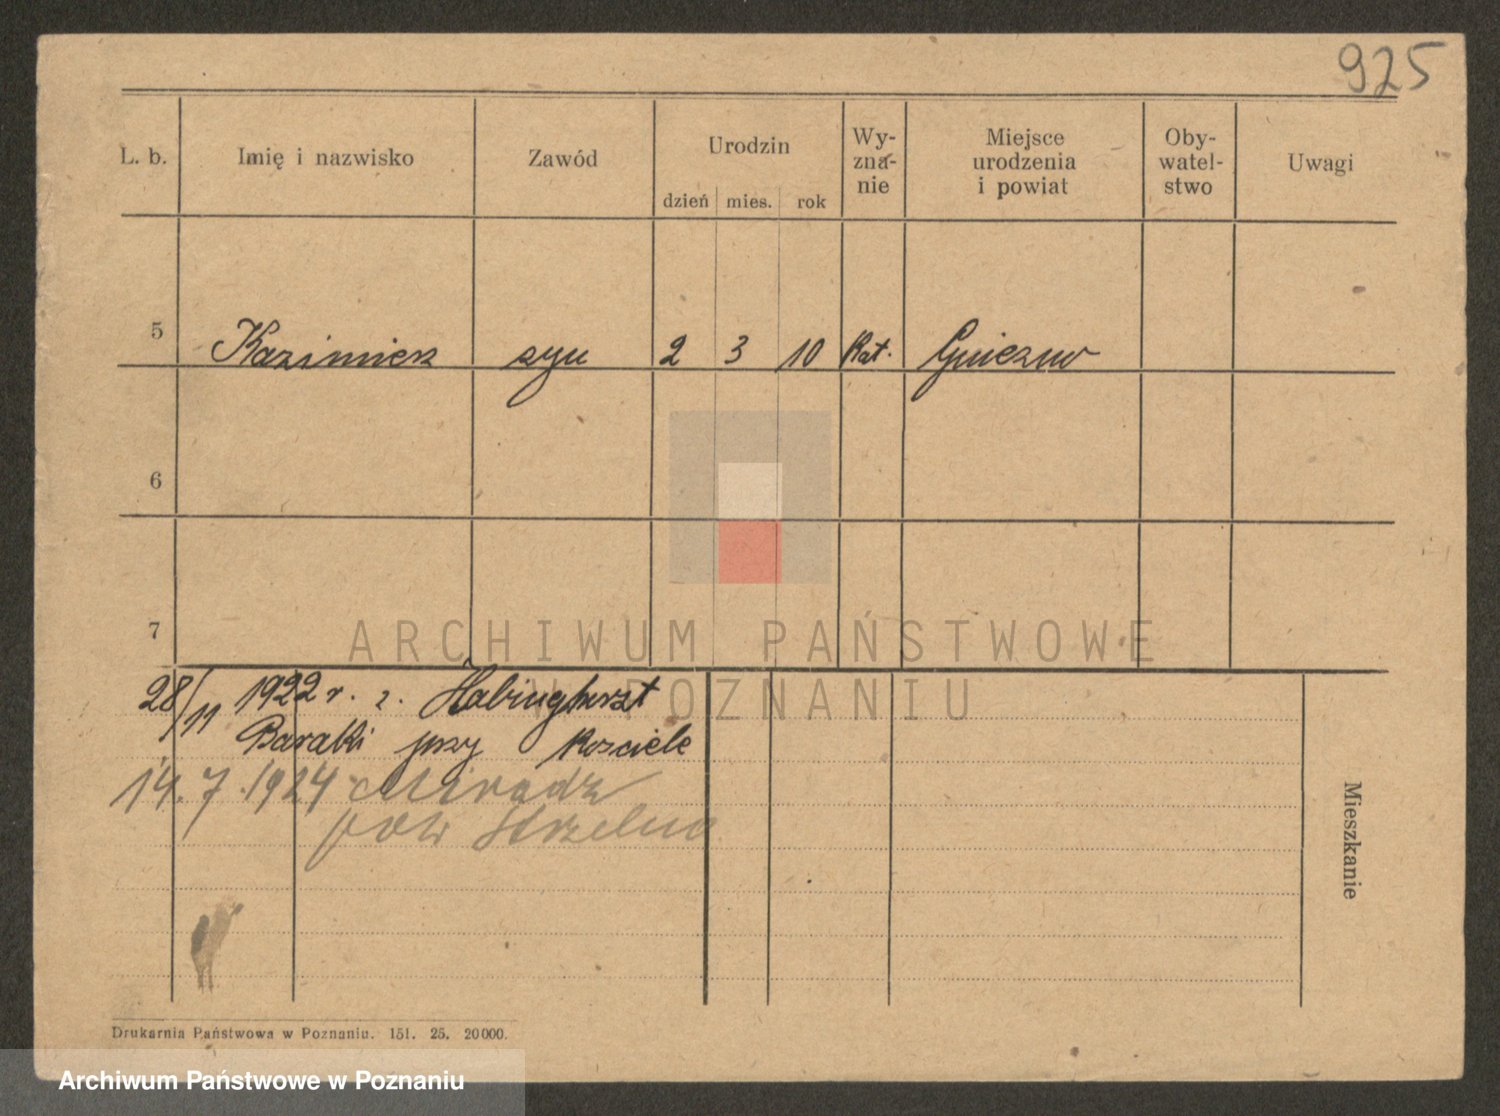 925
L. b. Imię i nazwisko Zawód Urodzin dzień mies. rok Wy-
zna-
nie Miejsce
urodzenia
i powiat Oby-
watel-
stwo Uwagi
5 Kazimierz syn 2 3 10 Kat. Gniezno
6
7
ARCHIWUM PAŃSTWOWE
W POZNANIU
28/11 1922 r. z. Habinghorst
Baraki przy Kosciele
14.7.1924 Miradz
pow Strzelno
Mieszkanie
Drukarnia Państwowa w Poznaniu. 151. 25. 20000.
Archiwum Państwowe w Poznaniu